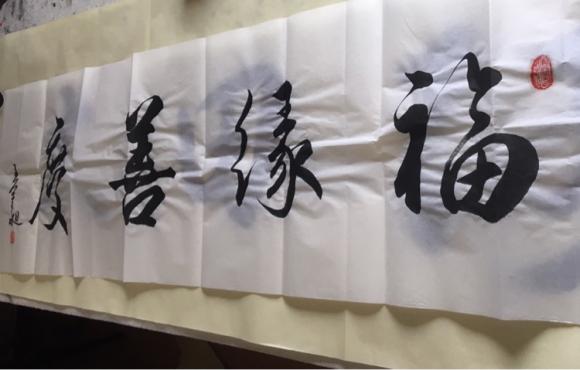 福缘善庆